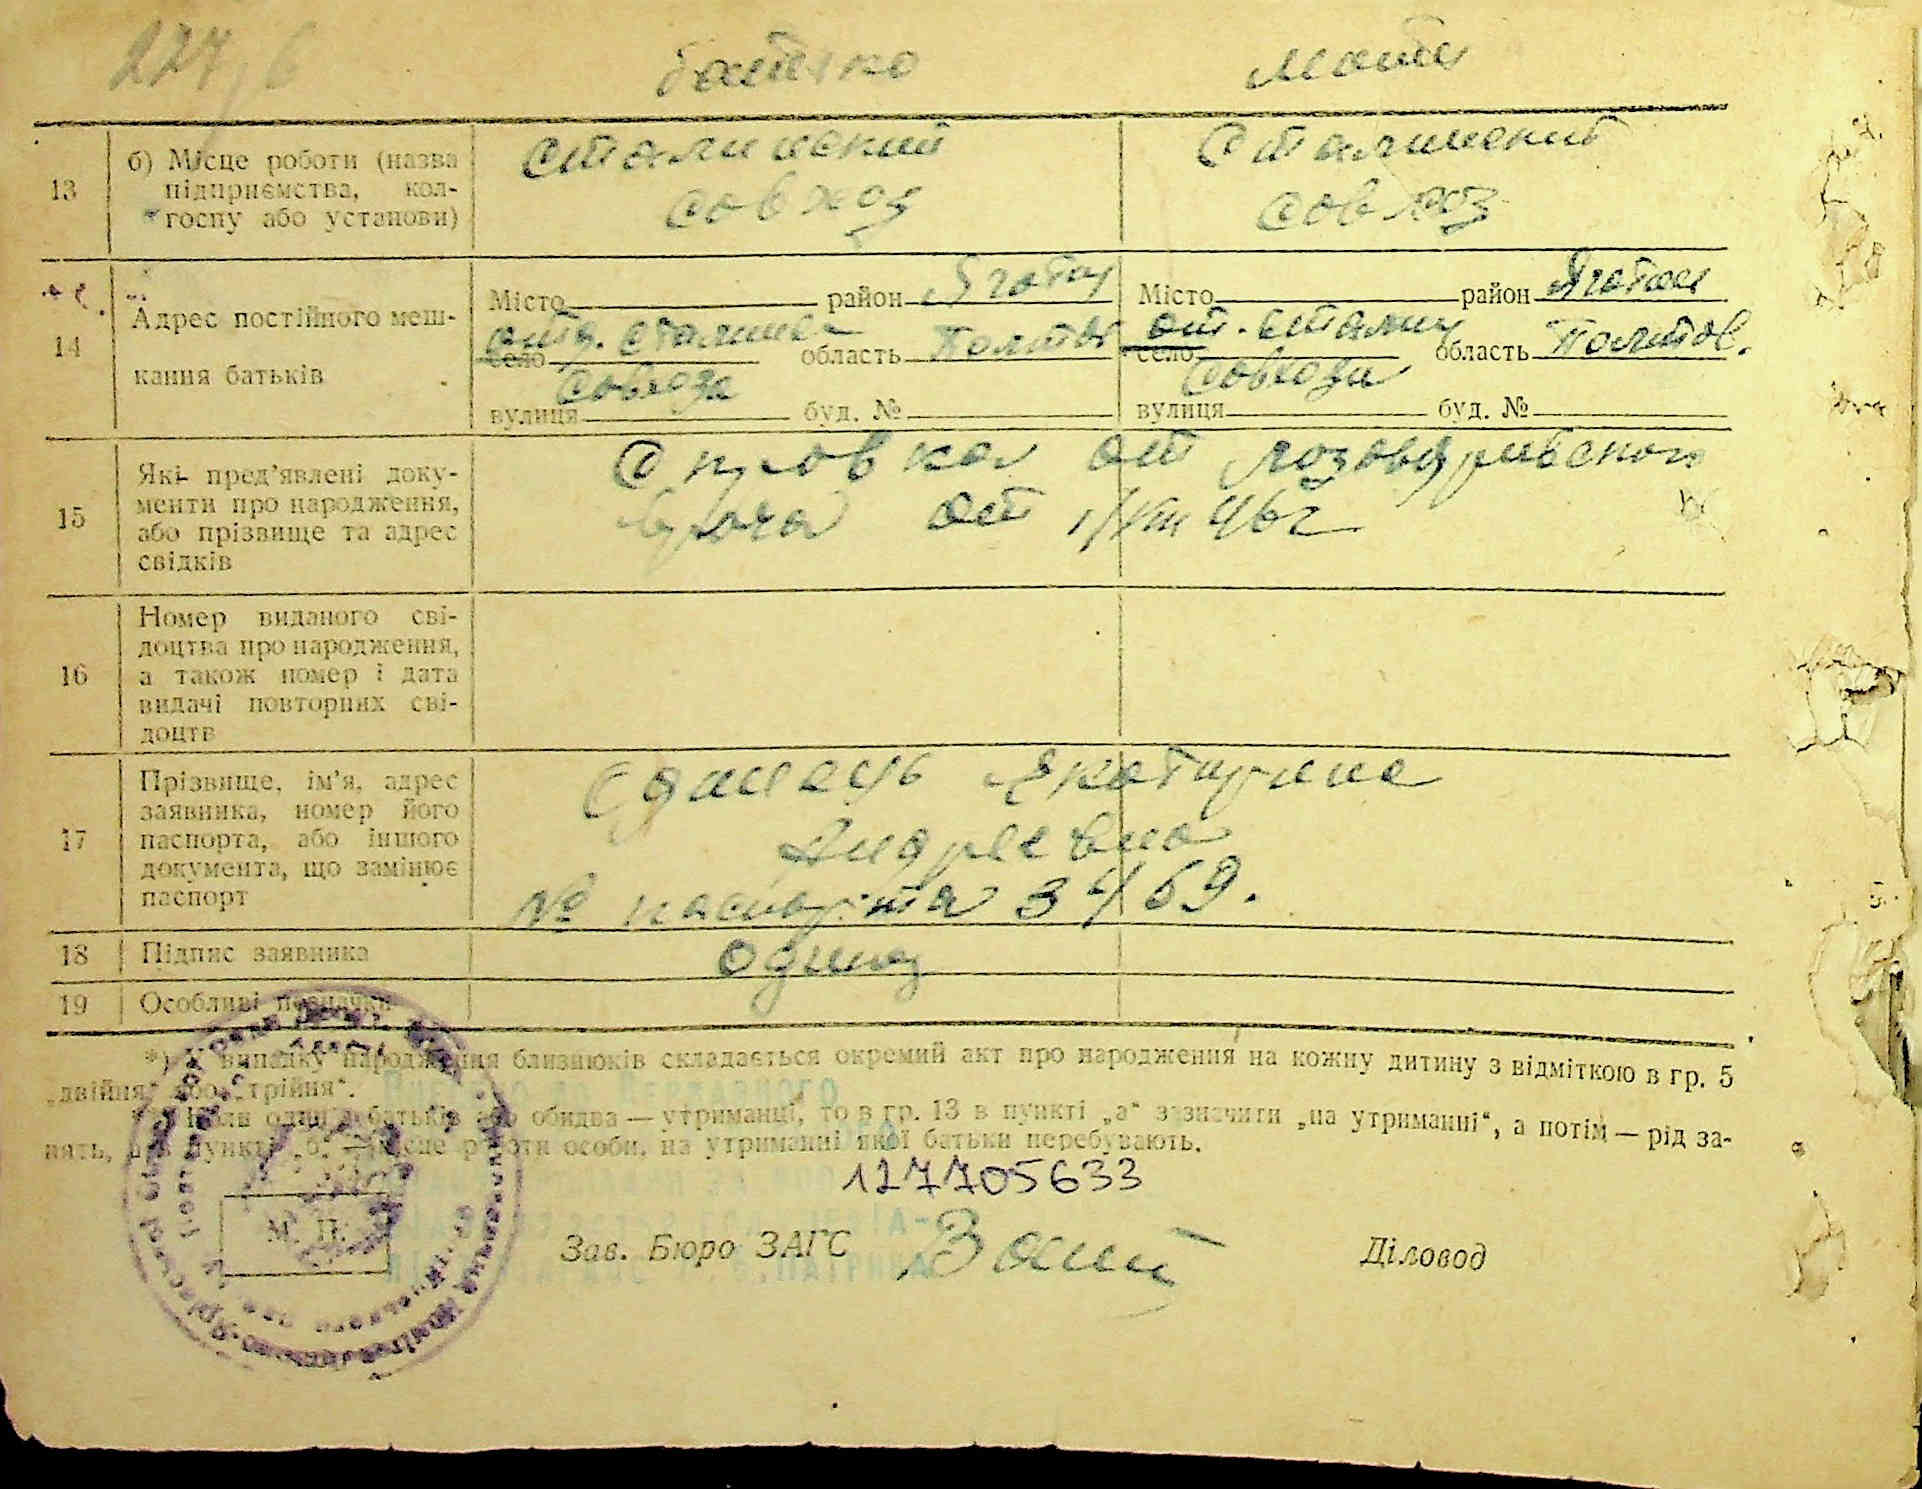 227, б
батько мати
13 б) Місце роботи (назва
підприємства, кол-
госпу або установи)
Сталинский Сталинский
совхоз совхоз
14 Адрес постійного меш-
кання батьків
Місто район Яготин Місто район Яготин
село отд. сталинс область Полтав село от. сталин область Полтов.
совхоза совхоза
вулиця буд. № вулиця буд. №
15 Які пред’явлені доку-
менти про народження,
або прізвище та адрес
свідків
Справка от
врача от 1/VIII 46 г
16 Номер виданого сві-
доцтва про народження,
а також номер і дата
видачі повторних сві-
доцтв
17 Прізвище, ім’я, адрес
заявника, номер його
паспорта, або іншого
документа, що замінює
паспорт
Одинець Екатирина
Андреевна
№ паспорта
18 Підпис заявника
19 Особливі позначки
*) У випадку народження близнюків складається окремий акт про народження на кожну дитину з відміткою в гр. 5
„двійня“ або „трійня“.
Коли один з батьків або обидва — утриманці, то в гр. 13 в пункті „а“ зазначити „на утриманні“, а потім — рід за-
нять, а в пункті „б“ — місце роботи особи, на утриманні якої батьки перебувають.
127705633
М. П.
Зав. Бюро ЗАГС Діловод